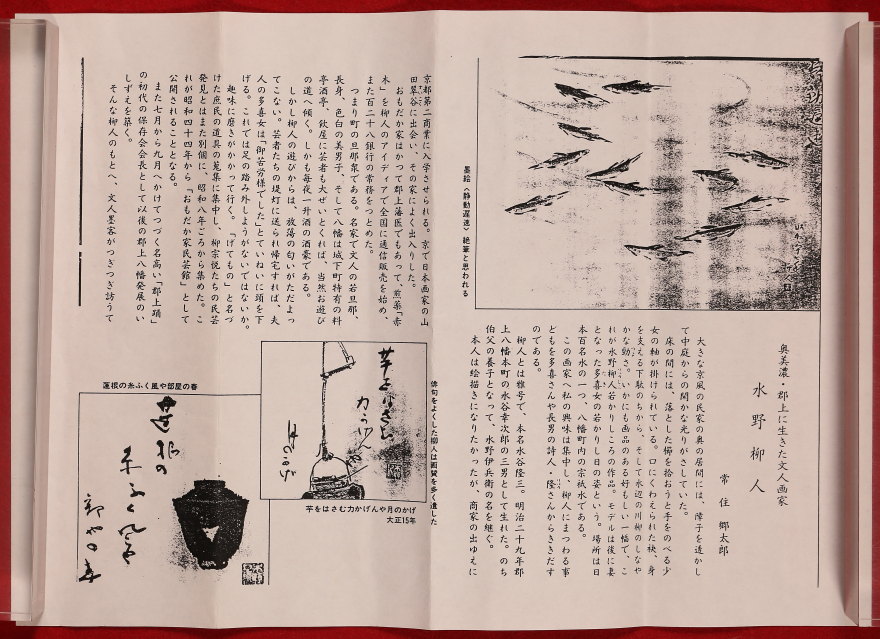 奥美濃・郡上に生きた文人画家
水野柳人
常住郷太郎
大きな京風の民家の奥の居間には、障子を透かし
て中庭からの閑かな光りがさしていた。
床の間には、落とした櫛を拾おうと手をのべる少
女の軸が掛けられている。口にくわえられた袂、身
を支える下駄のちから、そして水辺の川柳のしなや
かな動き。いかにも画品のある好もしい一幅で、こ
れが水野柳人若かりしころの作品。モデルは後に妻
となった多喜女の若かりし日の姿という。場所は日
本百名水の一つ、八幡町内の宗祇水である。
この画家へ私の興味は集中し、柳人にまつわる事
どもを多喜さんや長男の詩人・隆さんからききだす
のである。
柳人とは雅号で、本名水谷隆三。明治二十九年郡
上八幡本町の水谷幸次郎の三男として生れた。のち
伯父の養子となって、水野伊兵衛の名を継ぐ。
本人は絵描きになりたかったが、商家の出ゆえに
墨絵〈静動遅速〉絶筆と思われる
京都第二商業に入学させられる。京で日本画家の山
田翠谷に出会い、その家によく出入りした。
おもだか家はかつて郡上藩医でもあって、煎薬「赤
本」を柳人のアイディアで全国に通信販売を始め、
また百二十八銀行の常務をつとめた。
つまり町の旦那衆である。名家で文人の若旦那、
長身、色白の美男子、そして八幡は城下町特有の料
亭酒亭、飲屋に芸者も大ぜいとくれば、当然お遊び
の道へ傾く。しかも毎夜一升酒の酒豪である。
しかし柳人の遊びからは、放蕩の匂いがただよっ
てこない。芸者たちの堤灯に送られ帰宅すれば、夫
人の多喜女は「御苦労様でした」とていねいに頭を下
げる。これでは足の踏み外しようがないではないか。
趣味に磨きがかかって行く。「げてもの」と名づ
けた庶民の道具の蒐集に集中し、柳宗悦たちの民芸
発見とはまた別個に、昭和八年ごろから集めた。こ
れが昭和四十四年から「おもだか家民芸館」として
公開されることとなる。
また七月から九月へかけてつづく名高い「郡上踊」
の初代の保存会会長として以後の郡上八幡発展のい
しずえを築く。
そんな柳人のもとへ、文人墨客がつぎつぎ訪うて
俳句をよくした柳人は画賛を多く遺した
芋をはさむ
力かげんや
月のかげ
芋をはさむ力かげんや月のかげ
大正15年
蓮根の糸ふく風や部屋の春
蓮根の
糸ふく風や
部やの春